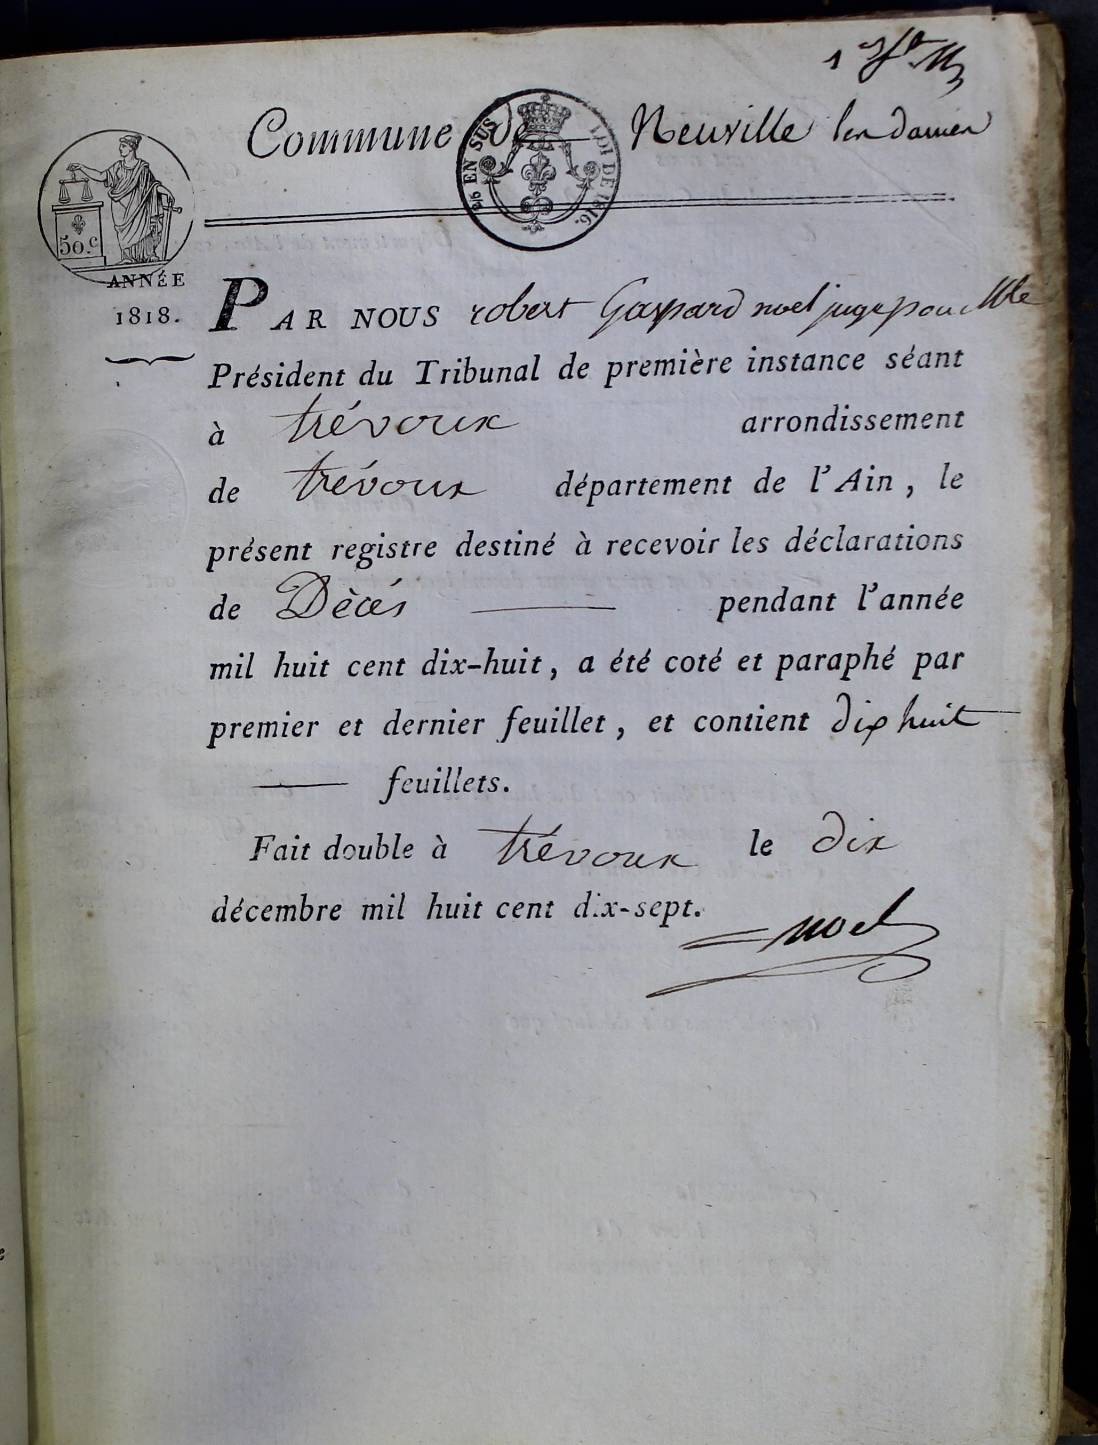 1er f.t N
Commune de Neuville les dames
EN SUS LOI DE 1816.
50.c
ANNÉE
1818.
PAR NOUS robert Gaspard noel juge pour Mr le
Président du Tribunal de première instance séant
à trévoux arrondissement
de trévoux département de l'Ain, le
présent registre destiné à recevoir les déclarations
de Décés pendant l'année
mil huit cent dix-huit, a été coté et paraphé par
premier et dernier feuillet, et contient dix huit
feuillets.
Fait double à trévoux le dix
décembre mil huit cent dix-sept.
noel